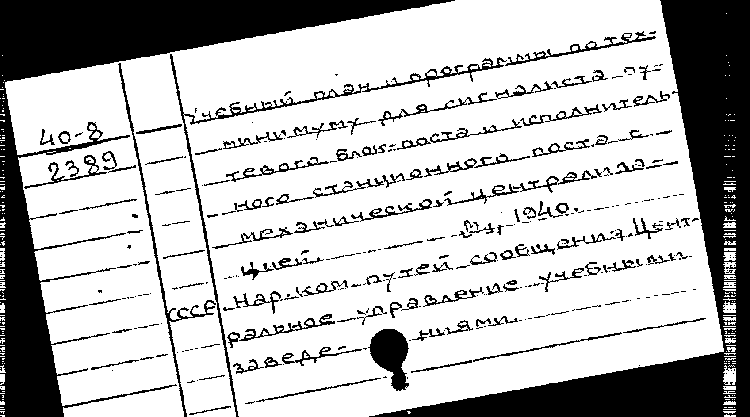 40-8
2389
Учебный план и программы по тех-
минимуму для сигналиста пу-
тевого блок-поста и исполнитель-
ного станционного поста с
механической централиза-
цией. М., 1940.
СССР. Нар. ком. путей сообщения. Цент-
ральное управление учебными
заведе- ниями.